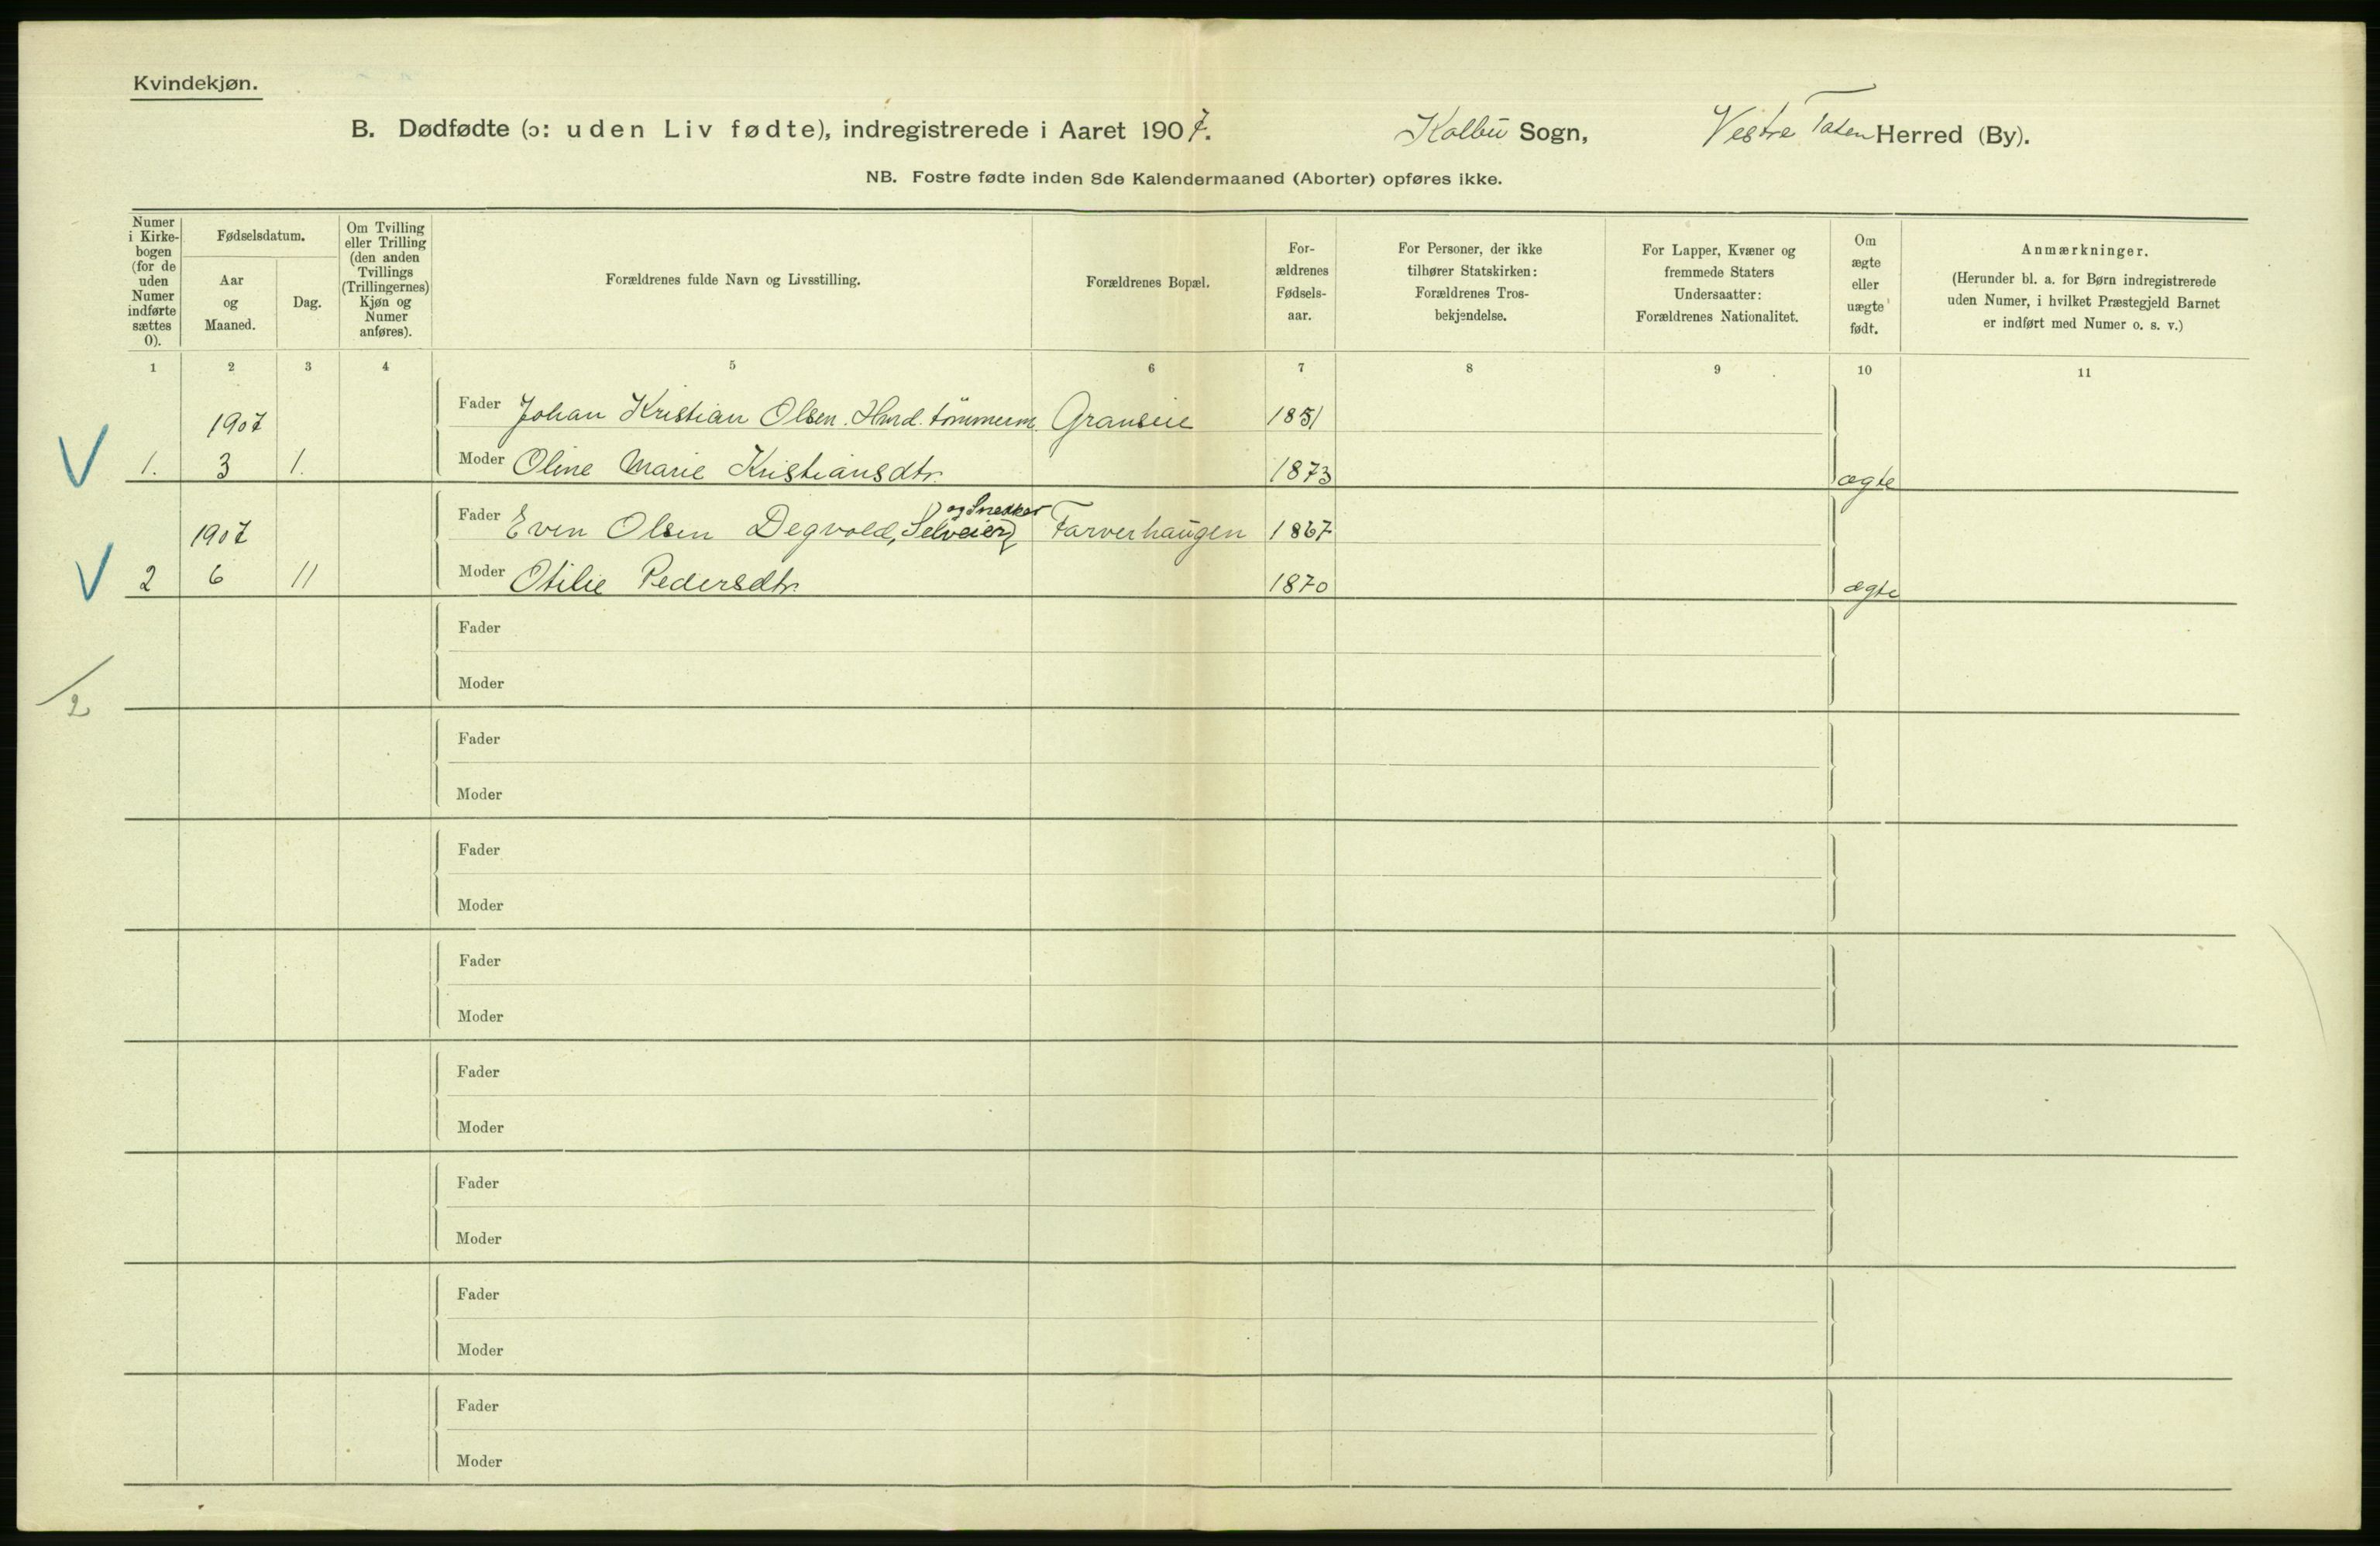 Kvindekjøn.
B. Dødfødte (ɔ: uden Liv fødte), indregistrerede i Aaret 1907. Kolbu Sogn, Vestre Toten Herred (By).
NB. Fostre fødte inden 8de Kalendermaaned (Aborter) opføres ikke.
Numer
i Kirke-
bogen
(for de
uden
Numer
indførte
sættes
0).
Fødselsdatum.
Aar
og
Maaned.
Dag.
Om Tvilling
eller Trilling
(den anden
Tvillings
(Trillingernes)
Kjøn og
Numer
anføres).
Forældrenes fulde Navn og Livsstilling.
Forældrenes Bopæl.
For-
ældrenes
Fødsels-
aar.
For Personer, der ikke
tilhører Statskirken:
Forældrenes Tros-
bekjendelse.
For Lapper, Kvæner og
fremmede Staters
Undersaatter:
Forældrenes Nationalitet.
Om
ægte
eller
uægte
født.
Anmærkninger.
(Herunder bl. a. for Børn indregistrerede
uden Numer, i hvilket Præstegjeld Barnet
er indført med Numer o. s. v.)
1 2 3 4 5 6 7 8 9 10 11
1907 Fader Johan Kristian Olsen. Hmd. tömmerm. 1851
V 1. 3 1. Moder Oline Marie Kristiansdtr. 1873 ægte
og Snedker
1907 Fader Even Olsen Degvold, Selveier Farverhaugen 1867
V 2 6 11 Moder Otilie Pedersdtr. 1870 ægte
Fader
Moder
2
Fader
Moder
Fader
Moder
Fader
Moder
Fader
Moder
Fader
Moder
Fader
Moder
Fader
Moder